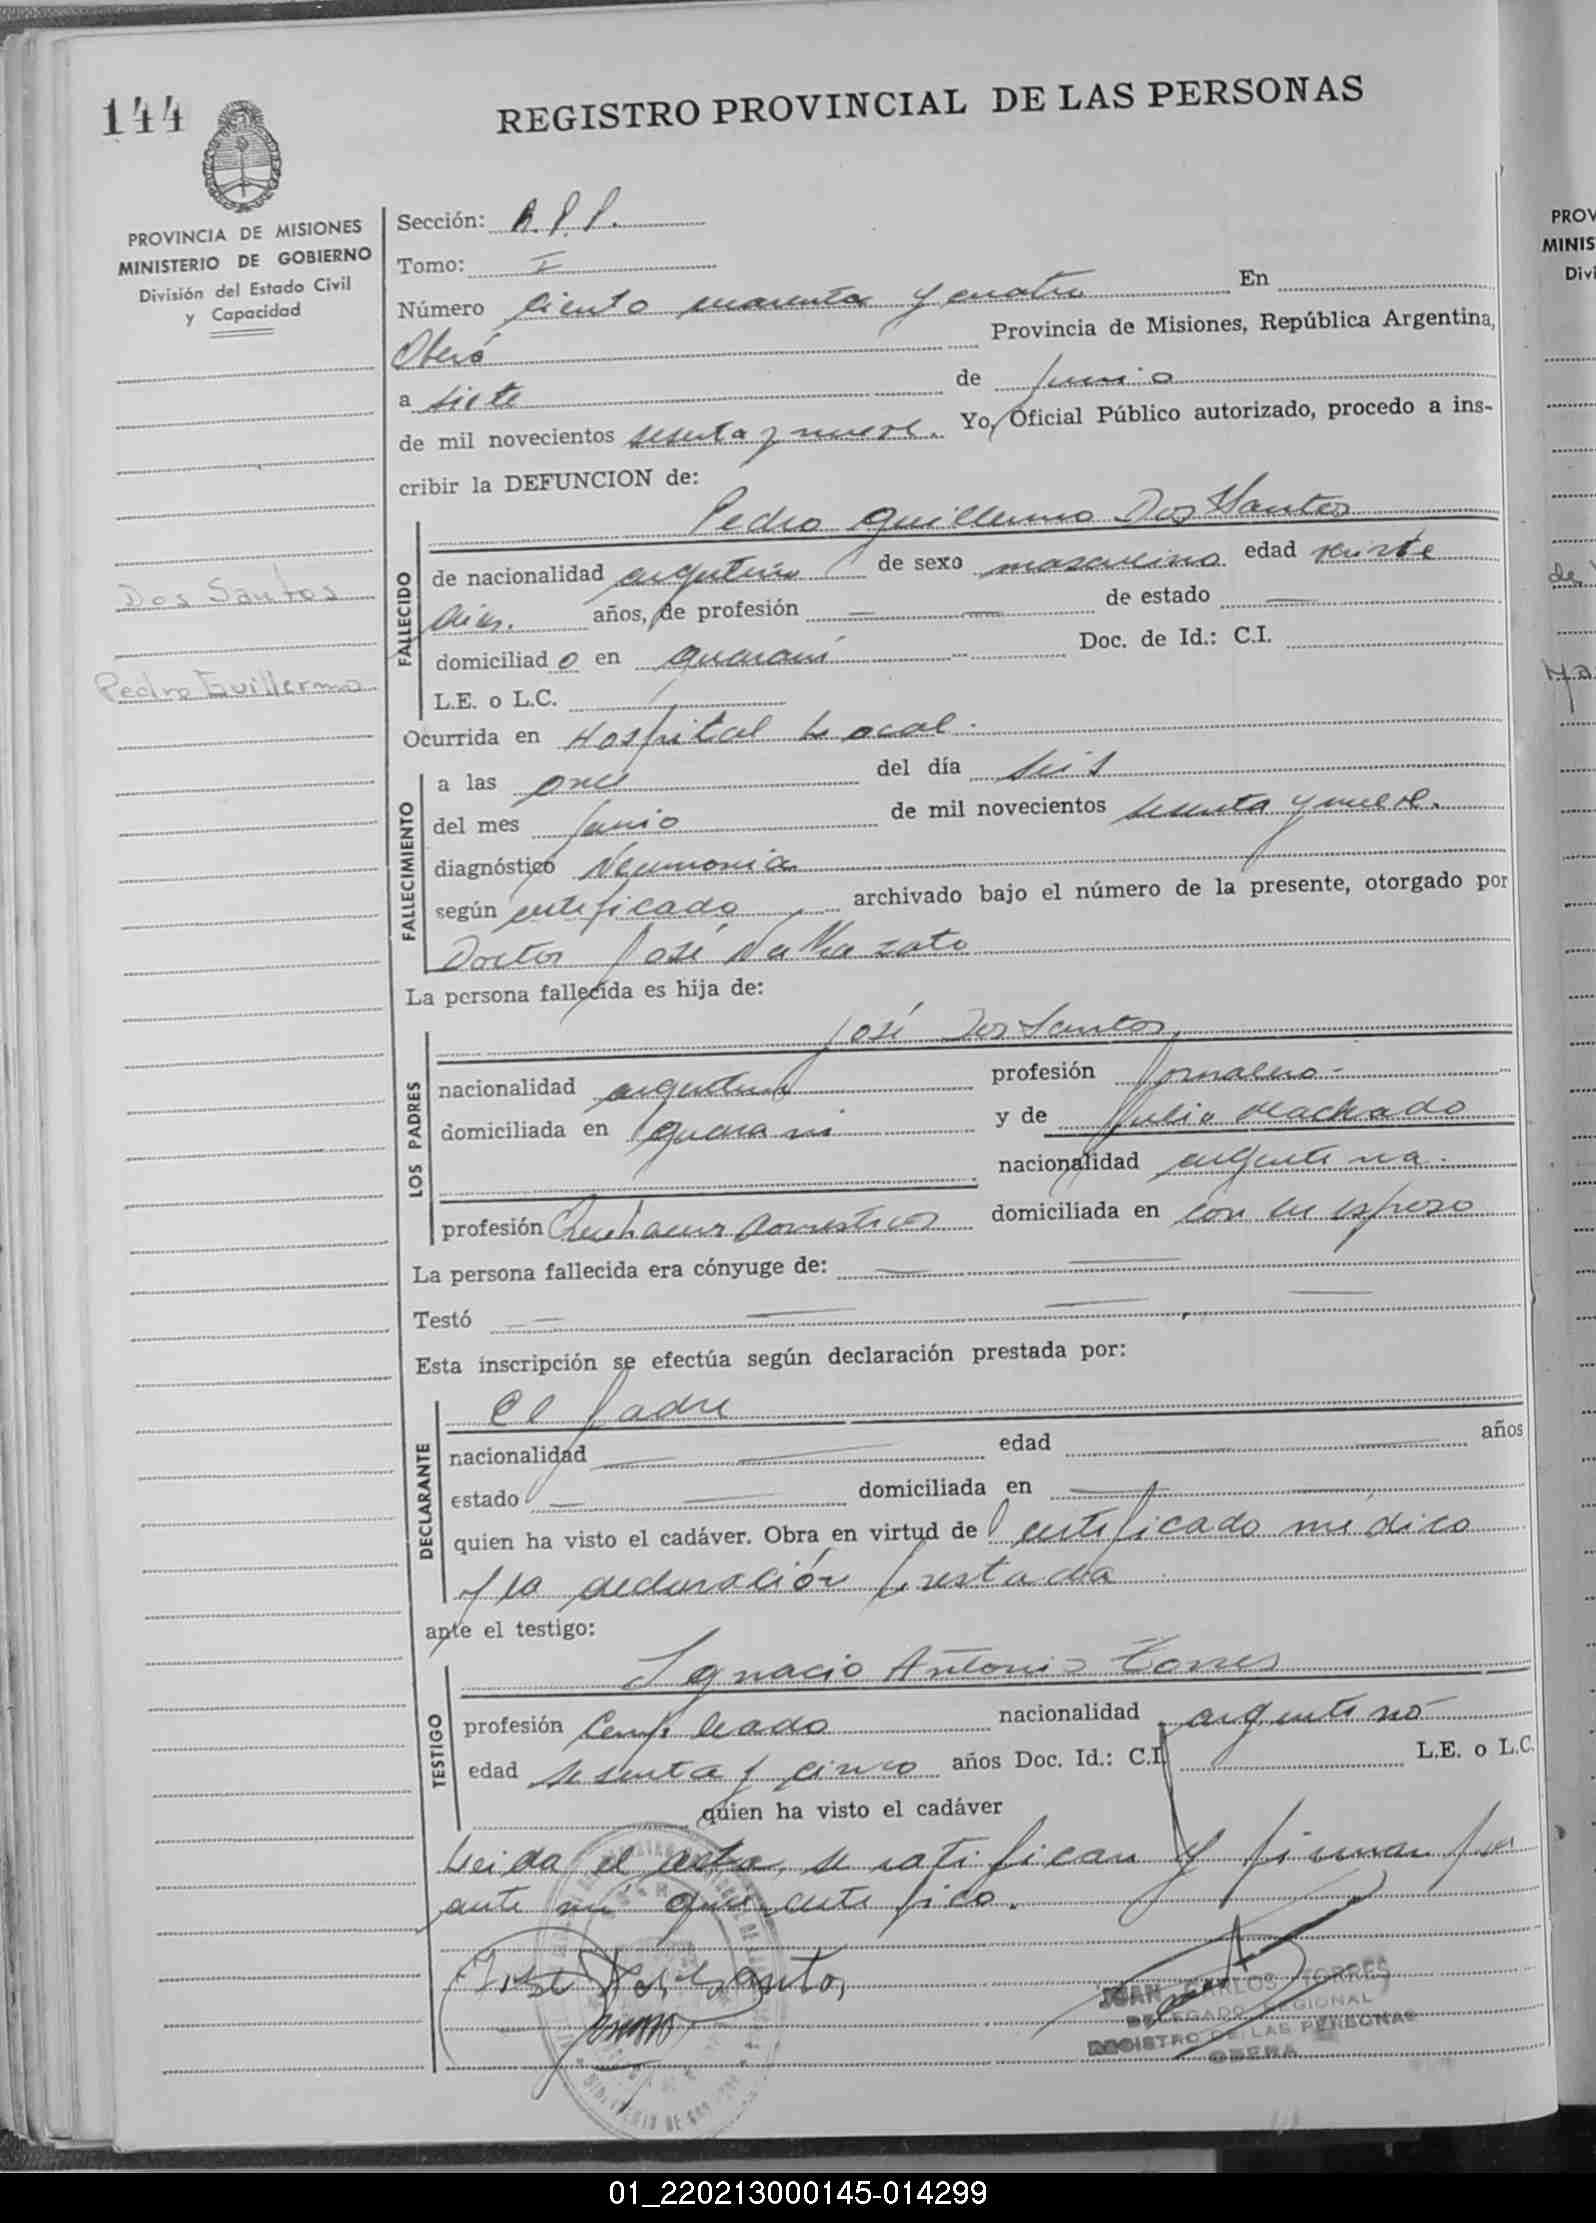 144
REGISTRO PROVINCIAL DE LAS PERSONAS
PROVINCIA DE MISIONES
MINISTERIO DE GOBIERNO
División del Estado Civil
y Capacidad
Dos Santos
Pedro Guillermo
Sección:
Tomo: I
Número Ciento cuarenta y cuatro En
Oberá Provincia de Misiones, República Argentina,
a siete de junio
de mil novecientos sesenta y nueve. Yo, Oficial Público autorizado, procedo a ins-
cribir la DEFUNCION de:
Pedro Guillermo Dos Santos
FALLECIDO
de nacionalidad argentino de sexo masculino edad veinte
días. años, de profesión — — de estado —
domiciliado en Guaraní Doc. de Id.: C.I.
L.E. o L.C.
Ocurrida en Hospital Local.
FALLECIMIENTO
a las once del día seis
del mes junio de mil novecientos sesenta y nueve.
diagnóstico Neumonia
según certificado archivado bajo el número de la presente, otorgado por
Doctor José
La persona fallecida es hija de:
LOS PADRES
José Dos Santos,
nacionalidad argentina profesión Jornalero -
domiciliada en Guaraní y de Julia Machado
nacionalidad argentina.
profesión Quehacer domesticos domiciliada en con su esposo
La persona fallecida era cónyuge de: — —
Testó — — — —
Esta inscripción se efectúa según declaración prestada por:
DECLARANTE
El padre
nacionalidad — — edad — — años
estado — — domiciliada en — —
quien ha visto el cadáver. Obra en virtud de certificado médico
y la declaración prestada
ante el testigo:
TESTIGO
Ignacio Antonio Torres
profesión Empleado nacionalidad argentino
edad sesenta y cinco años Doc. Id.: C.I. L.E. o L.C.
quien ha visto el cadáver
Leida el acta, se ratifican y firman por
ante mí que certifico.
José Dos Santos
JUAN CARLOS TORRES
DELEGADO REGIONAL
REGISTRO DE LAS PERSONAS
OBERA
PROV
MINIS
Divi
01_220213000145-014299